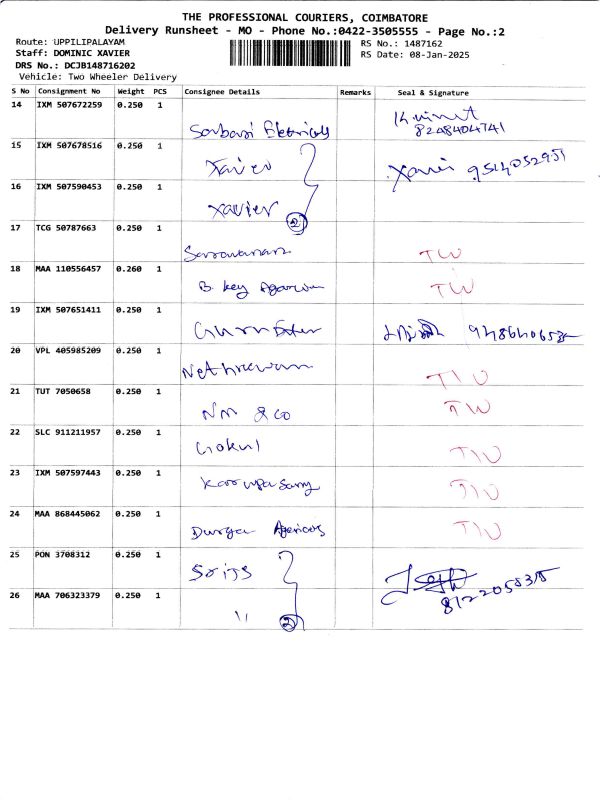 THE PROFESSIONAL COURIERS, COIMBATORE
Delivery Runsheet - MO - Phone No.:0422-3505555 - Page No.:2
Route: UPPILIPALAYAM
RS No.: 1487162
Staff: DOMINIC XAVIER
RS Date: 08-Jan-2025
DRS No.: DCJB148716202
Vehicle: Two Wheeler Delivery
S No Consignment No Weight PCS Consignee Details Remarks Seal & Signature
14 IXM 507672259 0.250 1
8248404741
15 IXM 507678516 0.250 1
Xavier Xavier
16 IXM 507590453 0.250 1
Xavier 2
17 TCG 50787663 0.250 1
Saravanan TW
18 MAA 110556457 0.260 1
B. Key TW
19 IXM 507651411 0.250 1
20 VPL 405985209 0.250 1
TW
21 TUT 7050658 0.250 1
NM & CO TW
22 SLC 911211957 0.250 1
Gokul TW
23 IXM 507597443 0.250 1
TW
24 MAA 868445062 0.250 1
Durga TW
25 PON 3708312 0.250 1
26 MAA 706323379 0.250 1
" 2